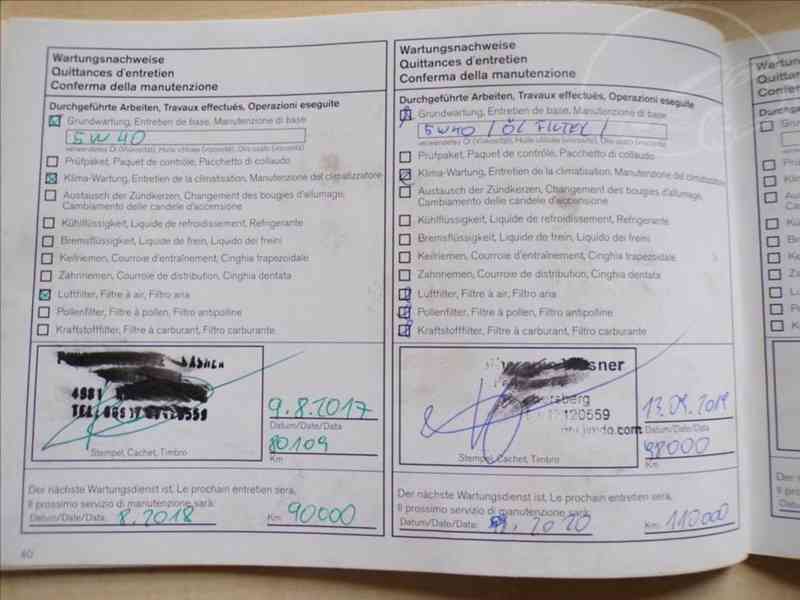 Wartungsnachweise
Quittances d'entretien
Conferma della manutenzione
Durchgeführte Arbeiten, Travaux effectués, Operazioni eseguite
Grundwartung, Entretien de base, Manutenzione di base
5W40
verwendetes Öl (Viskosität), Huile utilisée (viscosité), Olio usato (viscosità)
Prüfpaket, Paquet de contrôle, Pacchetto di collaudo
Klima-Wartung, Entretien de la climatisation, Manutenzione del climatizzatore
Austausch der Zündkerzen, Changement des bougies d'allumage,
Cambiamento delle candele d'accensione
Kühlflüssigkeit, Liquide de refroidissement, Refrigerante
Bremsflüssigkeit, Liquide de frein, Liquido dei freini
Keilriemen, Courroie d'entraînement, Cinghia trapezoidale
Zahnriemen, Courroie de distribution, Cinghia dentata
Luftfilter, Filtre à air, Filtro aria
Pollenfilter, Filtre à pollen, Filtro antipolline
Kraftstofffilter, Filtre à carburant, Filtro carburante
4981
TEL
Stempel, Cachet, Timbro
9.8.2017
Datum/Date/Data
80109
Km
Der nächste Wartungsdienst ist, Le prochain entretien sera,
Il prossimo servizio di manutenzione sarà:
Datum/Date/Data: 8.2018 Km 90000
60
Wartungsnachweise
Quittances d'entretien
Conferma della manutenzione
Durchgeführte Arbeiten, Travaux effectués, Operazioni eseguite
Grundwartung, Entretien de base, Manutenzione di base
5W40 / ÖL FILTEL /
verwendetes Öl (Viskosität), Huile utilisée (viscosité), Olio usato (viscosità)
Prüfpaket, Paquet de contrôle, Pacchetto di collaudo
Klima-Wartung, Entretien de la climatisation, Manutenzione del climatizzatore
Austausch der Zündkerzen, Changement des bougies d'allumage,
Cambiamento delle candele d'accensione
Kühlflüssigkeit, Liquide de refroidissement, Refrigerante
Bremsflüssigkeit, Liquide de frein, Liquido dei freini
Keilriemen, Courroie d'entraînement, Cinghia trapezoidale
Zahnriemen, Courroie de distribution, Cinghia dentata
Luftfilter, Filtre à air, Filtro aria
Pollenfilter, Filtre à pollen, Filtro antipolline
Kraftstofffilter, Filtre à carburant, Filtro carburante
sner
sberg
120559
jimdo.com
Stempel, Cachet, Timbro
Datum/Date/Data
Km
Der nächste Wartungsdienst ist, Le prochain entretien sera,
Il prossimo servizio di manutenzione sarà:
Datum/Date/Data: 2020 Km 110000